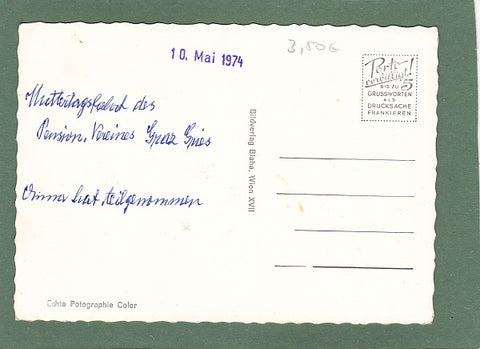 10. Mai 1974
3,50€
Porto
vorbildlich!
BIS ZU 5
GRUSSWORTEN
ALS
DRUCKSACHE
FRANKIEREN
Muttertagsfahrt des
Pension. Vereines Graz Gries
hat teilgenommen
Bildverlag Blaha, Wien XVII
Echte Potographie Color